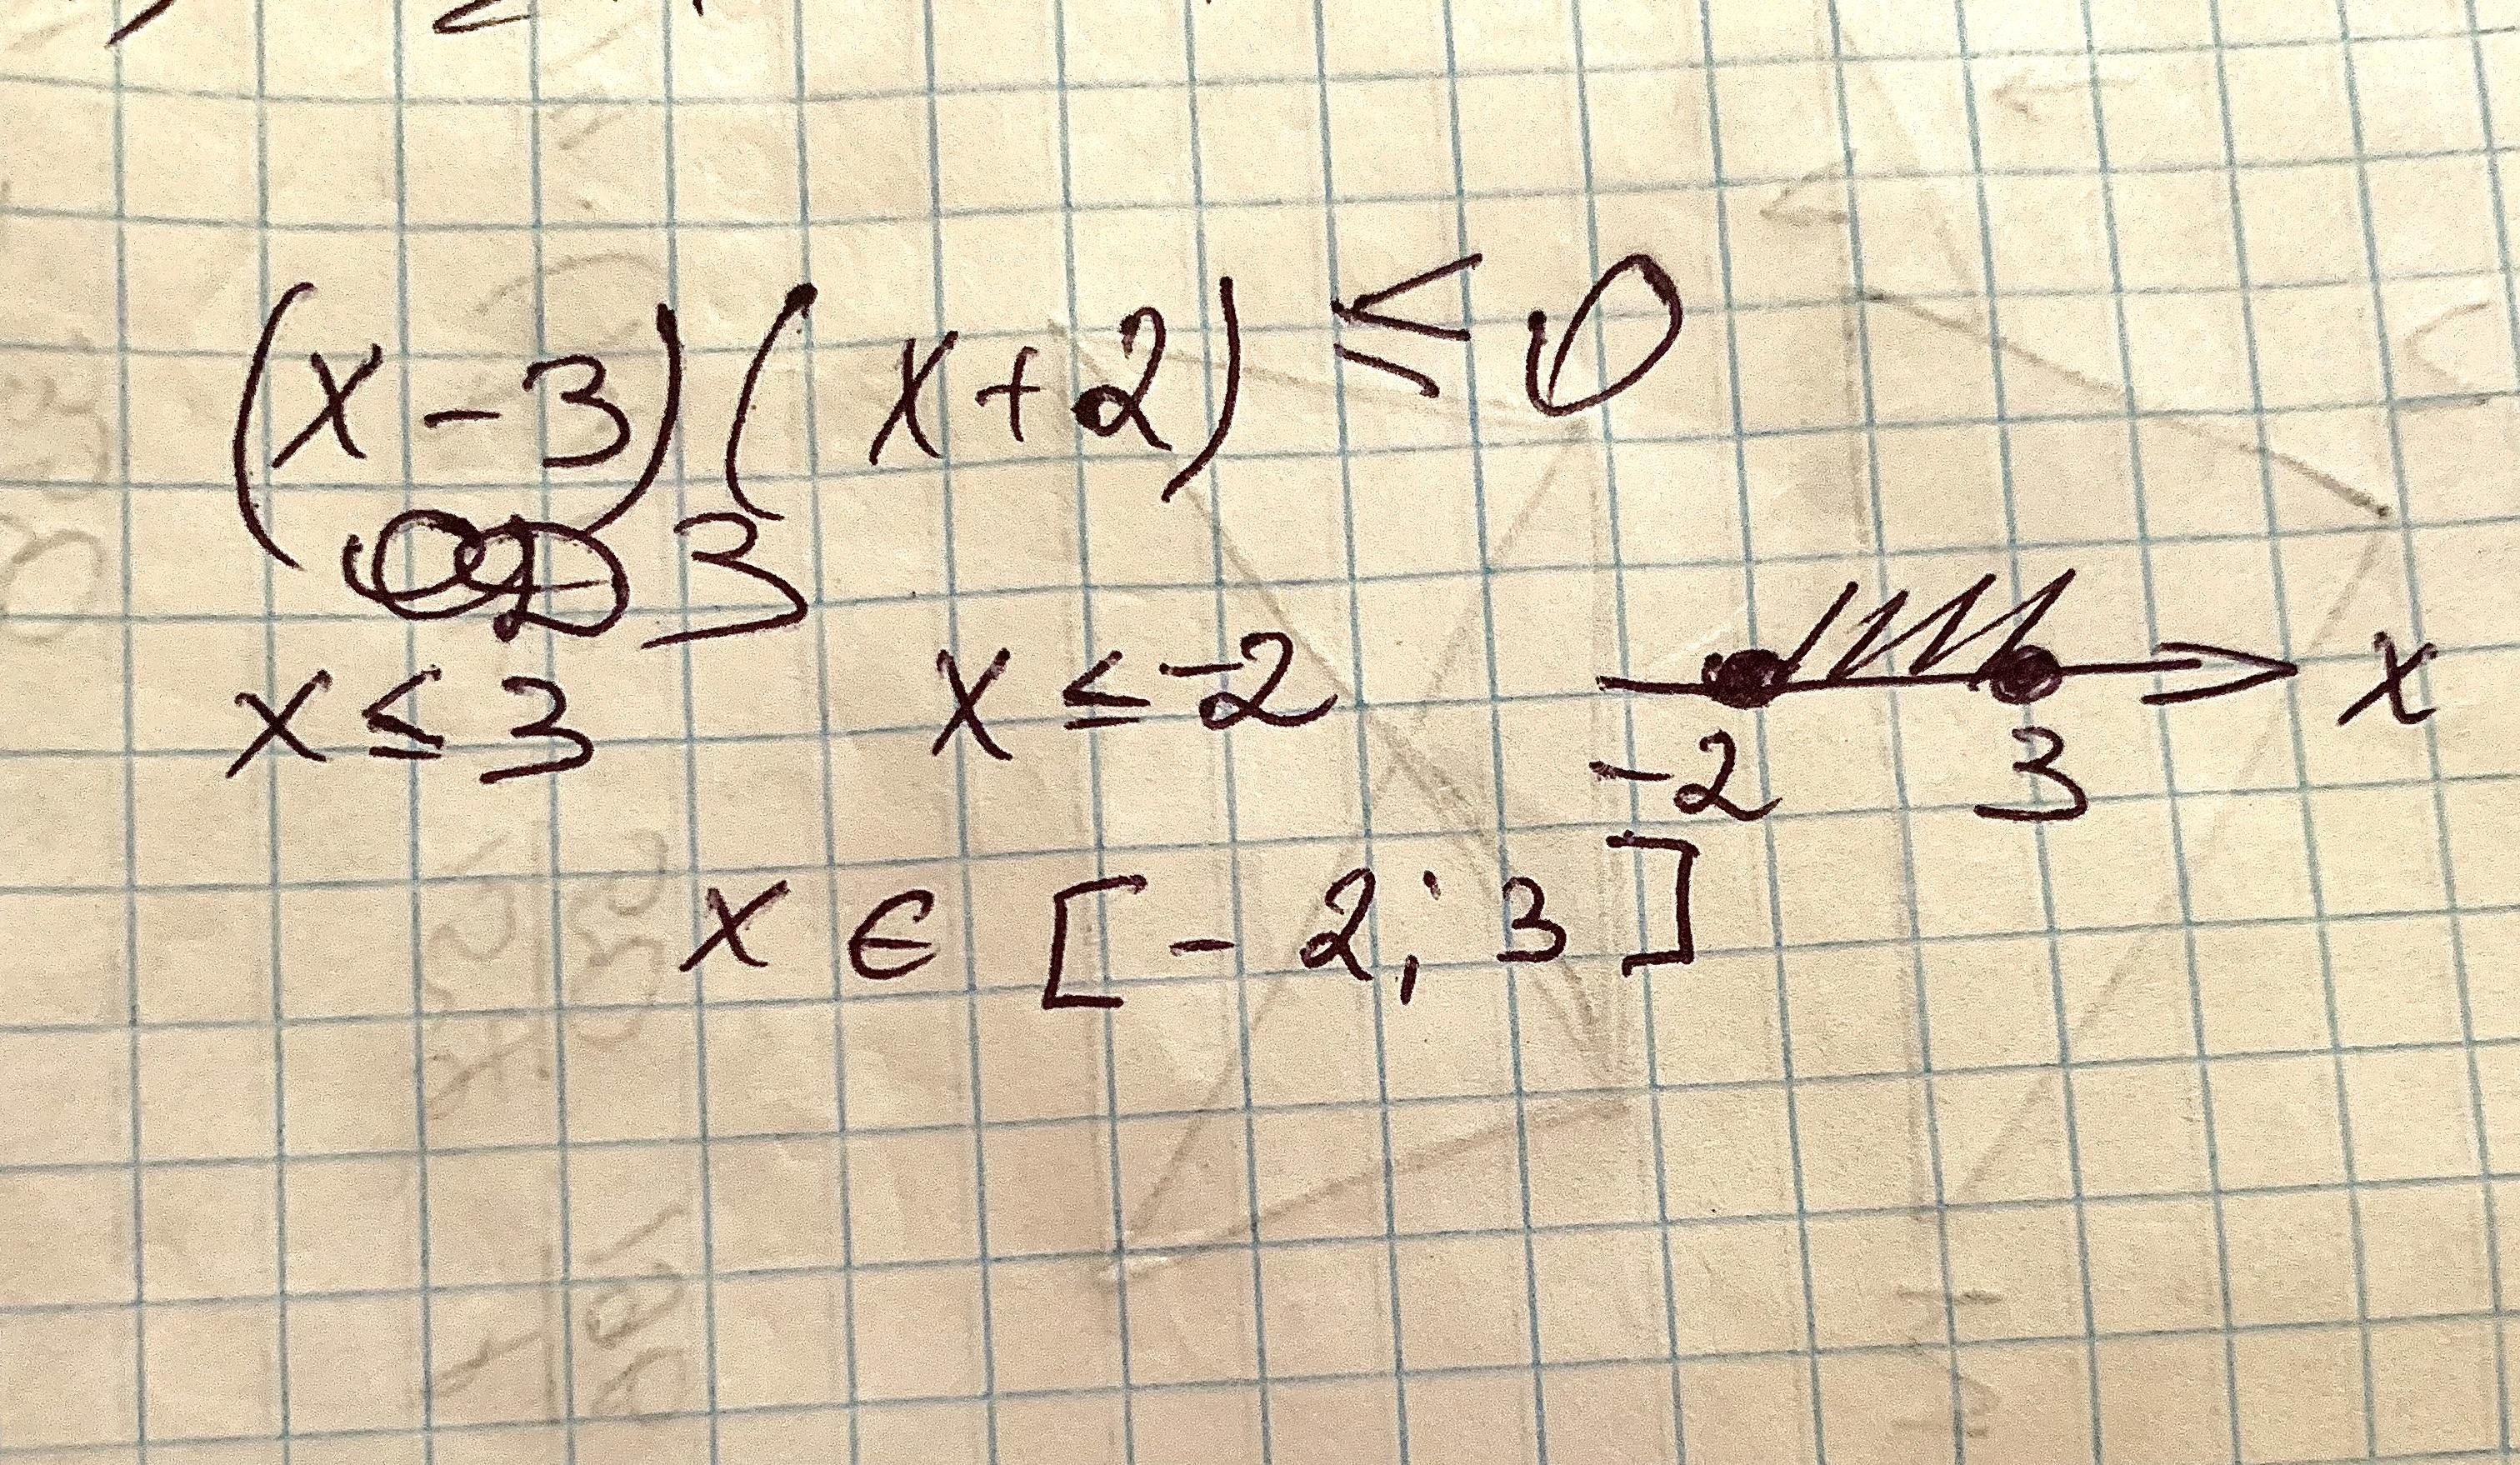 (x-3)(x+2)≤0
3
x≤3 x≤-2 x
-2 3
x∈[-2;3]